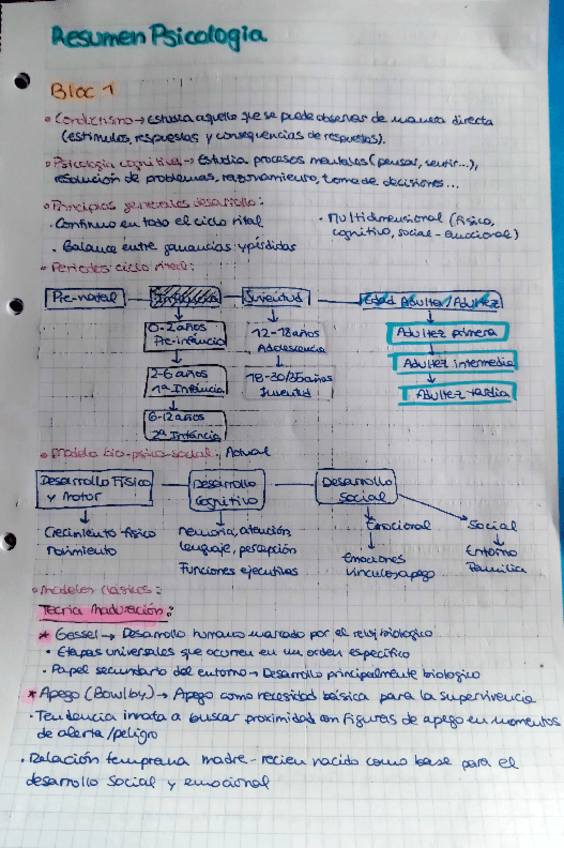 Resumen Psicologia
Bloc 1
• Conductismo → Estudia aquello que se puede observar de manera directa
(estímulos, respuestas y consequencias de respuestas).
• Psicologia cognitiva → Estudia procesos mentales (pensar, sentir...),
resolución de problemas, razonamiento, toma de decisiones...
• Principios generales desarrollo:
· Continuo en todo el ciclo vital
· Multidimensional (físico,
cognitivo, social-emocional)
· Balance entre ganancias y pérdidas
• Periodos ciclo vital:
Pre-natal Infancia Juventud Edad Adulta/Adultez
0-2 años
Pre-infáncia
12-18 años
Adolescencia
Adultez primera
2-6 años
1ª Infáncia
18-30/35 años
Juventud
Adultez intermedia
Adultez tardía
6-12 años
2ª Infáncia
• Modelo bio-psico-social: Actual
Desarrollo Físico
y Motor
Desarrollo
Cognitivo
Desarrollo
Social
Crecimiento físico
movimiento
Memoria, atención,
lenguaje, percepción
Funciones ejecutivas
Emocional
Emociones
Vinculos, apego
Social
Entorno
Familia
• Modelos clásicos:
Teoría Maduración:
* Gessel → Desarrollo humano marcado por el reloj biológico
• Etapas universales que ocurren en un orden específico
• Papel secundario del entorno → Desarrollo principalmente biológico
* Apego (Bowlby) → Apego como necesidad básica para la supervivencia
• Tendencia innata a buscar proximidad con figuras de apego en momentos
de alerta/peligro
• Relación temprana madre-recien nacido como base para el
desarrollo social y emocional